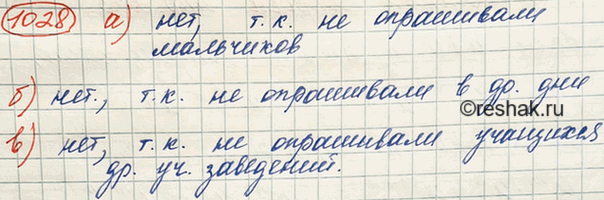 1028 а) нет, т.к. не опрашивали
мальчиков
б) нет., т.к. не опрашивали в др. дни
©reshak.ru
в) нет, т.к. не опрашивали учащихся
др. уч. заведений.